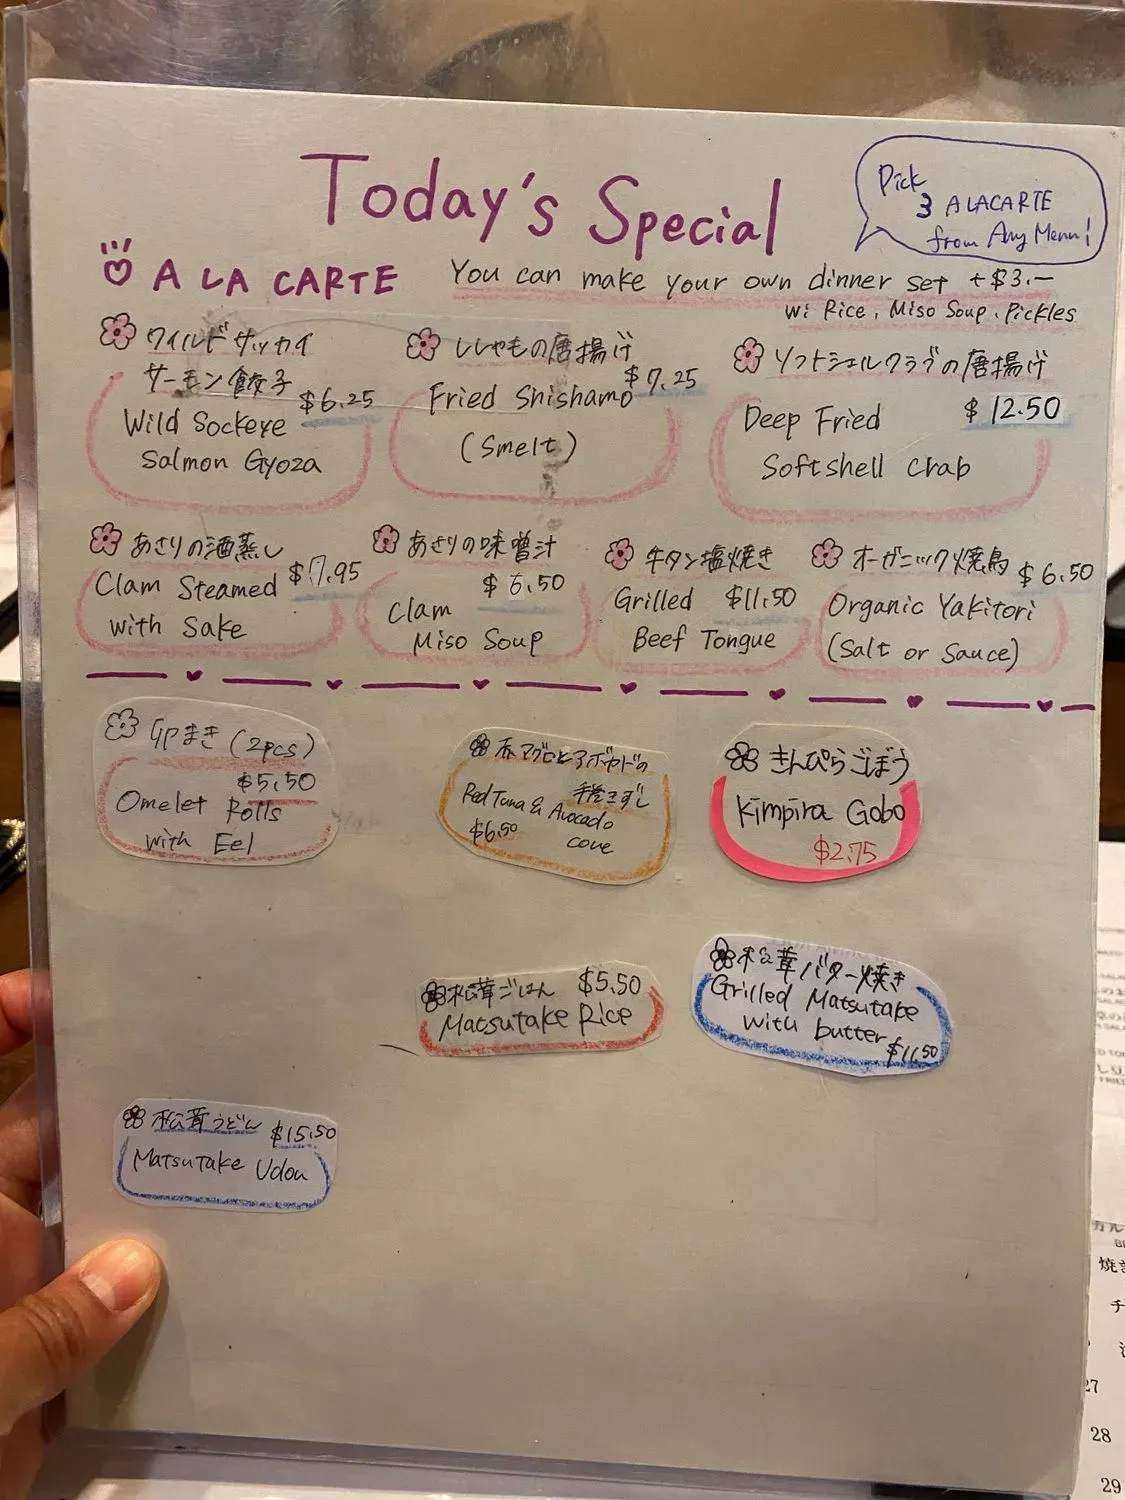 Today's Special
Pick
3 A LACARTE
from Any Menu!
A LA CARTE
You can make your own dinner set +$3.—
w/ Rice, Miso Soup, Pickles
ワイルドサッカイ
サーモン餃子
$6.25
Wild Sockeye
Salmon Gyoza
ししゃもの唐揚げ
$7.25
Fried Shishamo
(Smelt)
ソフトシェルクラブの唐揚げ
Deep Fried
$12.50
Softshell Crab
あさりの酒蒸し
Clam Steamed
$7.95
with Sake
あさりの味噌汁
$6.50
Clam
Miso Soup
牛タン塩焼き
Grilled $11.50
Beef Tongue
オーガニック焼鳥 $6.50
Organic Yakitori
(Salt or Sauce)
まき (2pcs)
$5.50
Omelet Rolls
with Eel
赤マグロとアボカドの
手巻きずし
Red Tuna & Avocado
$6.50
cone
きんぴらごぼう
Kimpira Gobo
$2.75
松茸ごはん $5.50
Matsutake Rice
松茸バター焼き
Grilled Matsutake
with butter
$11.50
松茸うどん $15.50
Matsutake Udon
焼き
チ
27
28
29